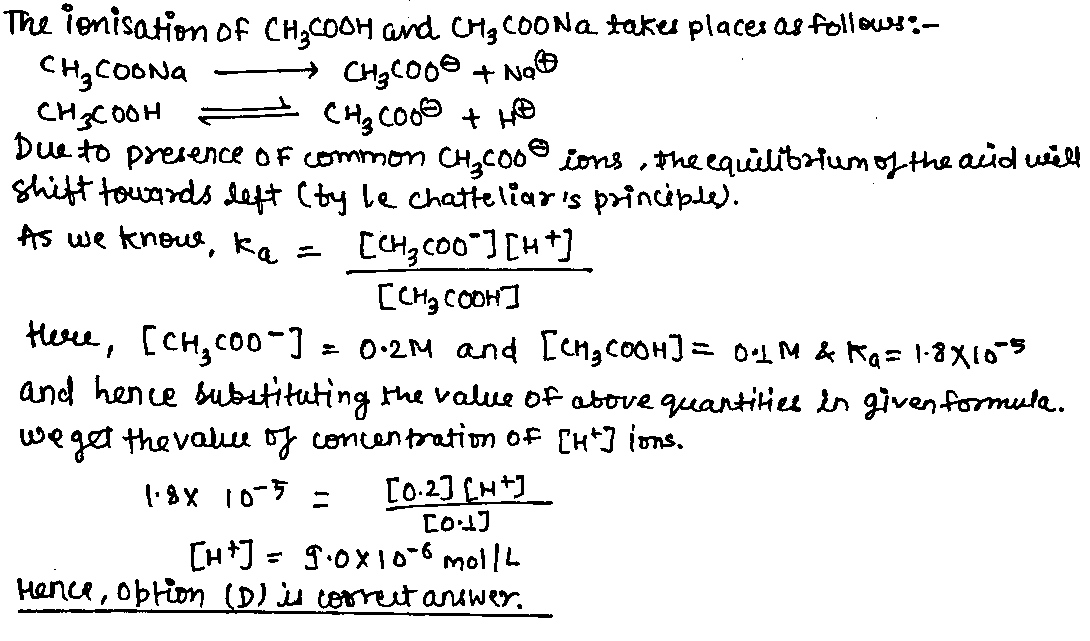 The ionisation of CH₃COOH and CH₃COONa takes places as follows:-
CH₃COONa ⟶ CH₃COO⊖ + Na⊕
CH₃COOH ⇌ CH₃COO⊖ + H⊕
Due to presence of common CH₃COO⊖ ions, the equilibrium of the acid will
shift towards left (by le chatteliar's principle).
As we know, Ka = [CH₃COO⁻][H⁺]
[CH₃COOH]
Here, [CH₃COO⁻] = 0.2M and [CH₃COOH] = 0.1M & Ka = 1.8X10⁻⁵
and hence substituting the value of above quantities in given formula.
we get the value of concentration of [H⁺] ions.
1.8X 10⁻⁵ = [0.2][H⁺]
[0.1]
[H⁺] = 9.0X10⁻⁶ mol/L
Hence, option (D) is correct answer.